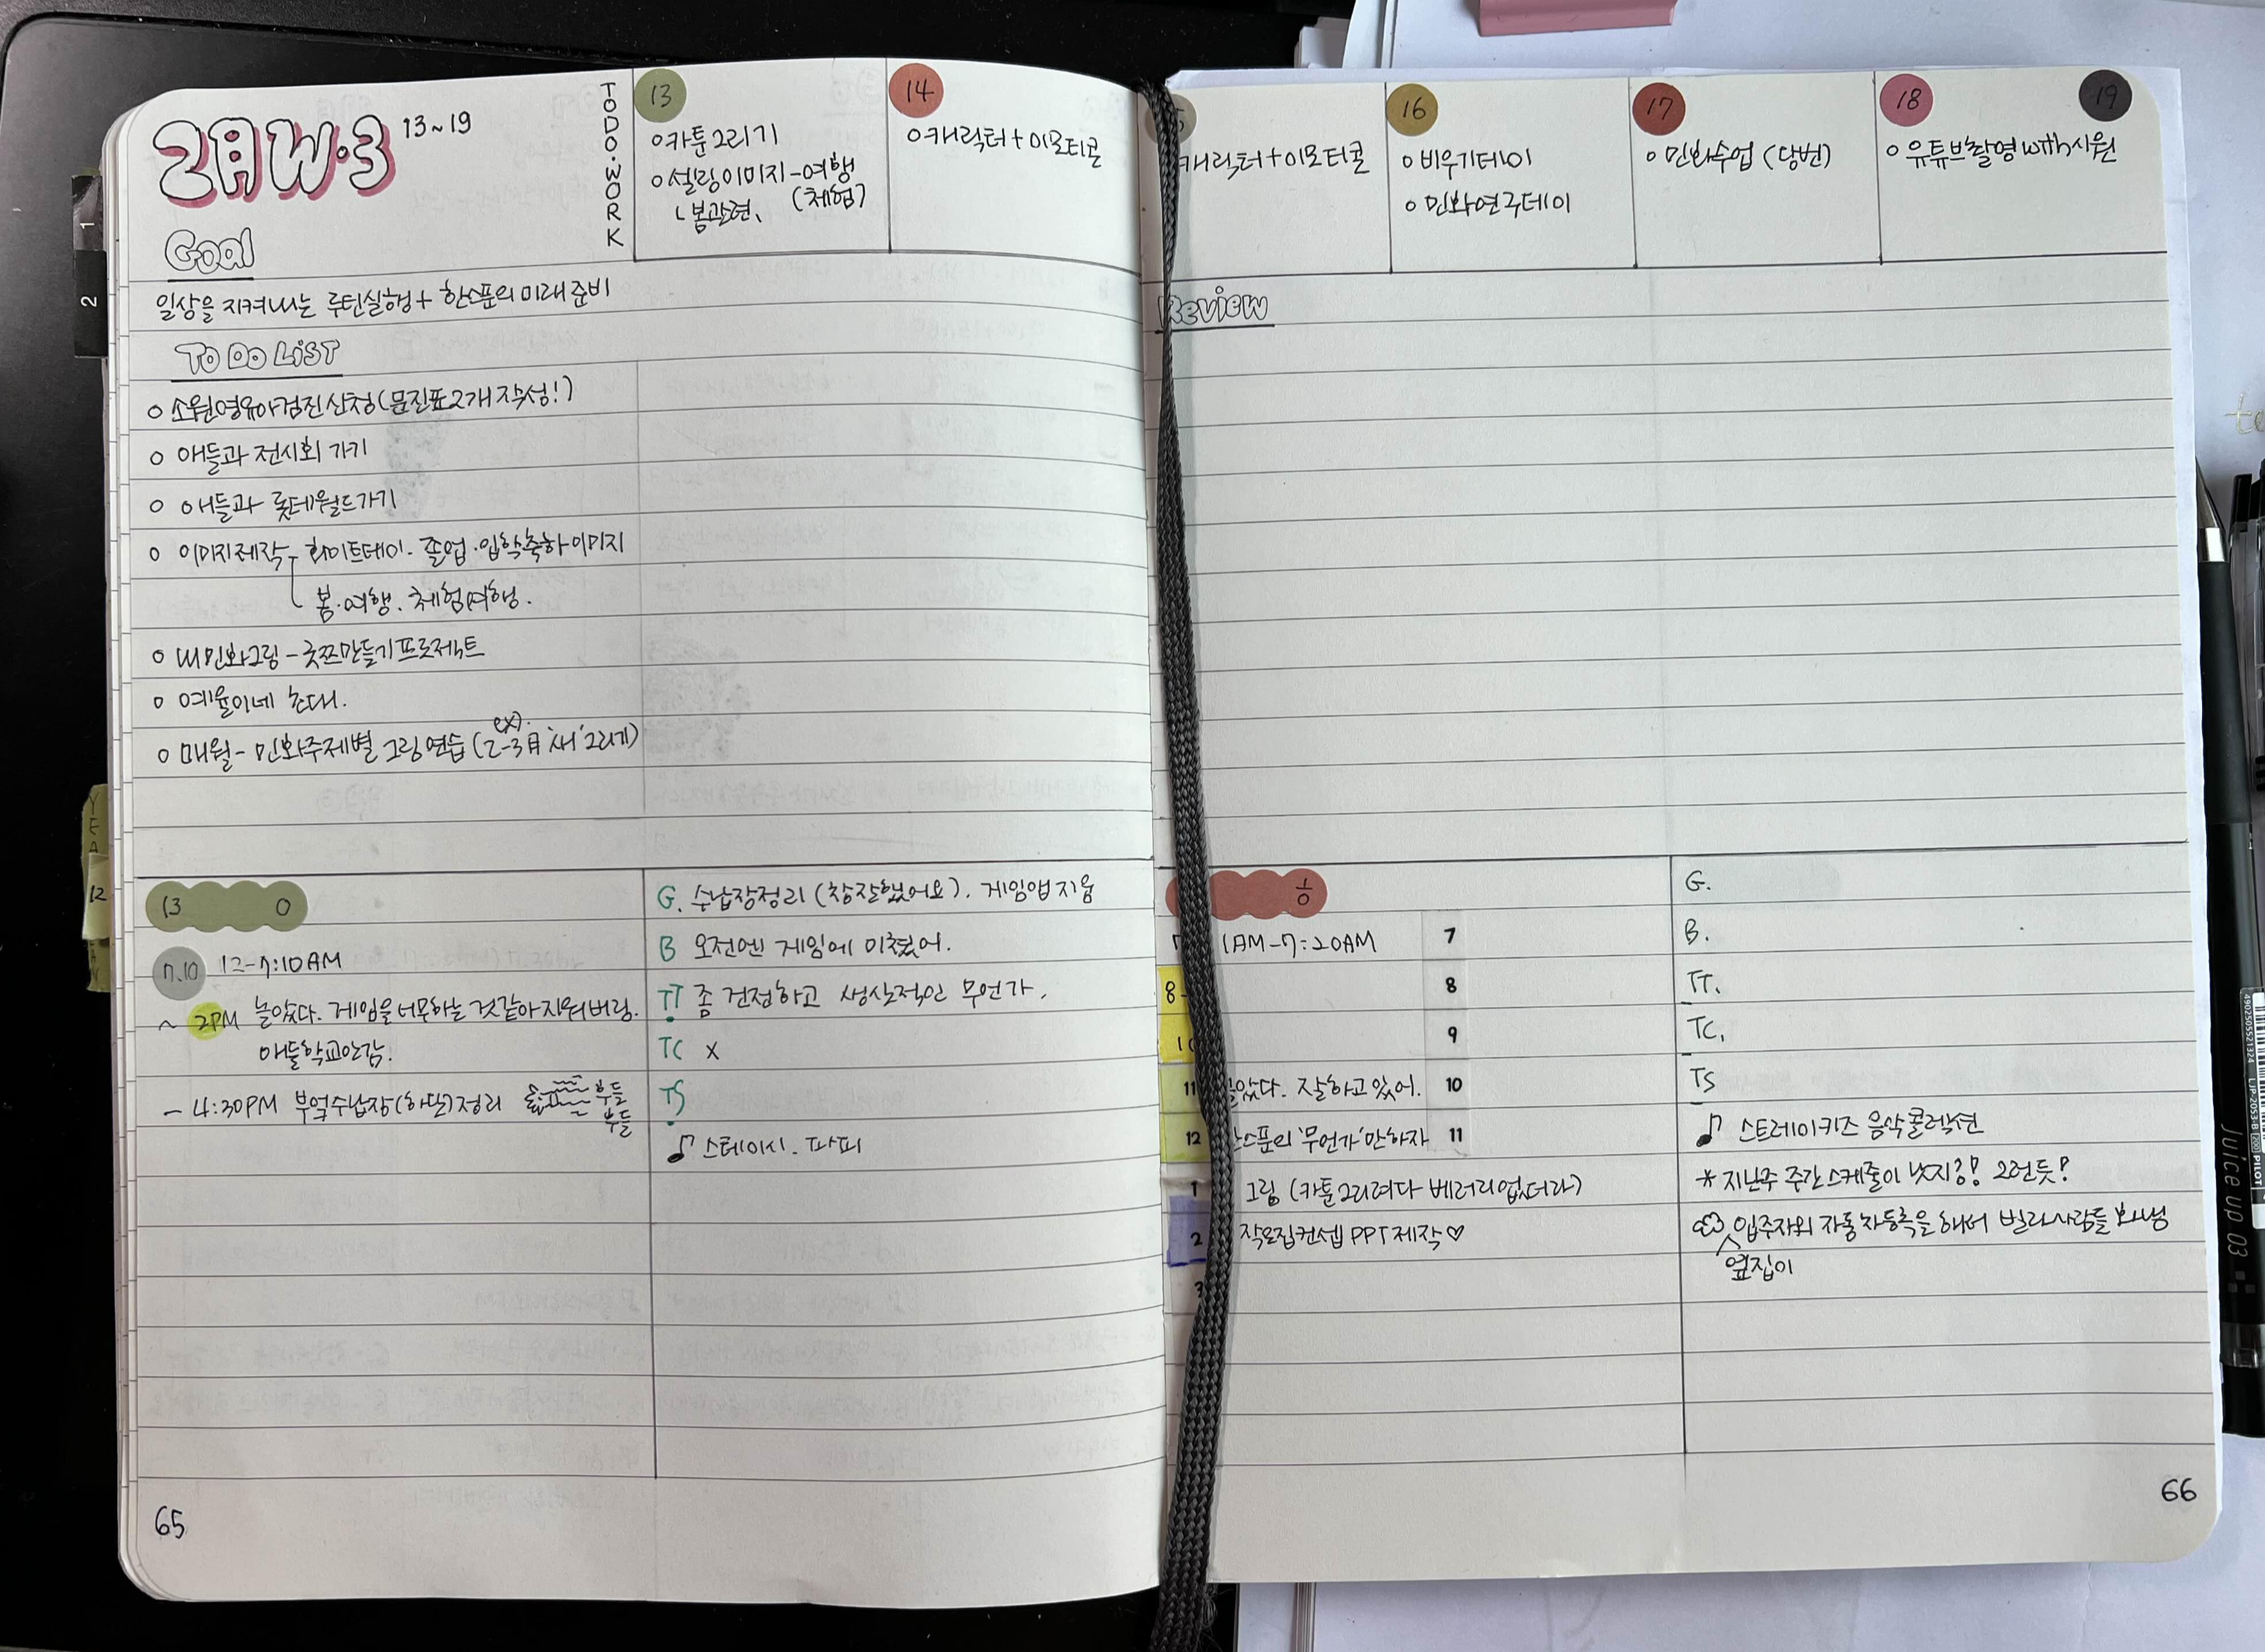 2月 W.3 13~19
TODO.WORK
13
o 카툰그리기
o 셀링이미지-여행
(체험)
ㄴ봄관련,
14
o 캐릭터+이모티콘
캐릭터+이모티콘
16
o 비우기데이
o 민화연구데이
17
o 민화수업 (당번)
18
o 유튜브촬영 with시원
19
Goal
일상을 지켜내는 루틴실행+ 한스푼의 미래준비
To Do LiST
o 소원영유아검진신청(문진표2개작성!)
o 애들과 전시회 가기
o 애들과 롯데월드가기
o 이미지제작 - 화이트데이. 졸업·입학축하이미지
봄·여행. 체험여행.
o 내민화그림 - 굿쯔만들기프로젝트
o 예율이네 초대.
ex).
o 매월 - 민화주제별 그림연습 (2-3月 '새' 그리기)
Review
13 0
7.10 12-7:10AM
~ 2PM 놀았다. 게임을 너무하는 것같아 지워버림.
애들학교안감.
- 4:30PM 부엌수납장(하단)정리 부들
부들
G. 수납장정리 (참잘했어요). 게임앱지움
B 오전엔 게임에 미쳤어.
TT 좀 건전하고 생산적인 무언가.
TC x
TS
♪ 스테이시. 파피
1/0
1AM-7:20AM
7
8-
8
10
9
11
았다. 잘하고 있어.
10
12
스푼의 '무언가'만하자
11
1
그림 (카툰그리려다 베러리없더라)
2
작요집컨셉 PPT제작♡
3
G.
B.
TT.
TC.
TS
♪ 스트레이키즈 음악콜렉션
* 지난주 주간스케줄이 낫지롱! 그런듯?
입주자외 자동차등록을 해서 빌라사람들 화냄
옆집이
65
66
1
2
YEA
12
Juice up 03
PILOT
LJP-20S3-B
4902505521324